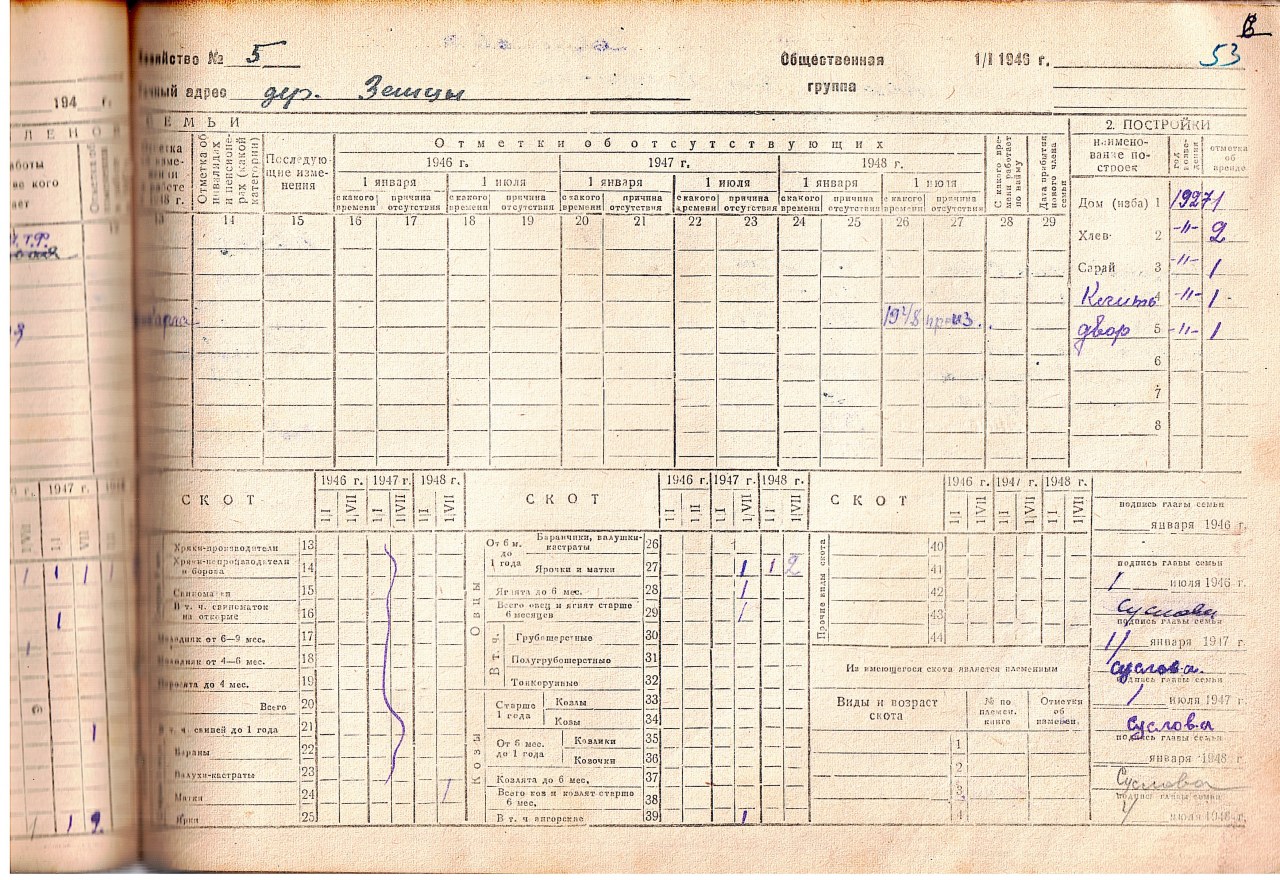 В
53
зяйство № 5
Общественная группа
1/I 1946 г.
чный адрес дер. Земцы
194 г.
ЕМЬИ
Отметка об инвалидах и пенсионерах (какой категории)
Последующие изменения
Отметки об отсутствующих
1946 г. 1947 г. 1948 г.
1 января 1 июля 1 января 1 июля 1 января 1 июля
с какого времени причина отсутствия с какого времени причина отсутствия с какого времени причина отсутствия с какого времени причина отсутствия с какого времени причина отсутствия с какого времени причина отсутствия
С какого времени работает по найму
Дата прибытия нового члена семьи
13 14 15 16 17 18 19 20 21 22 23 24 25 26 27 28 29
1948
2. ПОСТРОЙКИ
наименование построек
год возведения
отметка об
Дом (изба) 1 1927 1
Хлев 2 -"- 2
Сарай 3 -"- 1
4 -"- 1
двор 5 -"- 1
6
7
8
СКОТ
1946 г. 1947 г. 1948 г.
1/I 1/VII 1/I 1/VII 1/I 1/VII
Хряки-производители 13
Хряки-непроизводители и борова 14
Свиноматки 15
В т. ч. свиноматок на откорме 16
Молодняк от 6—9 мес. 17
Молодняк от 4—6 мес. 18
Поросята до 4 мес. 19
Всего 20
В т. ч. свиней до 1 года 21
Бараны 22
Валухи-кастраты 23
Матки 24 1
Ярки 25
СКОТ
1946 г. 1947 г. 1948 г.
1/I 1/VII 1/VII
Овцы
От 6 м. до 1 года
Баранчики, валушки-кастраты 26 1
Ярочки и матки 27 1 1 2
Ягнята до 6 мес. 28 1
Всего овец и ягнят старше 6 месяцев 29 1
В т. ч.
Грубошерстные 30
Полугрубошерстные 31
Тонкорунные 32
Козы
Старше 1 года
Козлы 33
Козы 34
От 6 мес. до 1 года
Козлики 35
Козочки 36
Козлята до 6 мес. 37
Всего коз и козлят старше 6 мес. 38
В т. ч. ангорские 39 1
СКОТ
1946 г. 1947 г. 1948 г.
1/I 1/VII 1/I 1/VII 1/I 1/VII
Прочие виды скота
40
41
42
43
44
Из имеющегося скота является племенным
Виды и возраст скота
№ по племен. книге
Отметки об изменен.
1
2
3
4
подпись главы семьи
января 1946 г.
подпись главы семьи
1 июля 1946 г.
Суслова
подпись главы семьи
1/ января 1947 г.
Суслова
подпись главы семьи
1 июля 1947 г.
Суслова
подпись главы семьи
января 1948 г.
Суслова
подпись главы семьи
июля 1948 г.